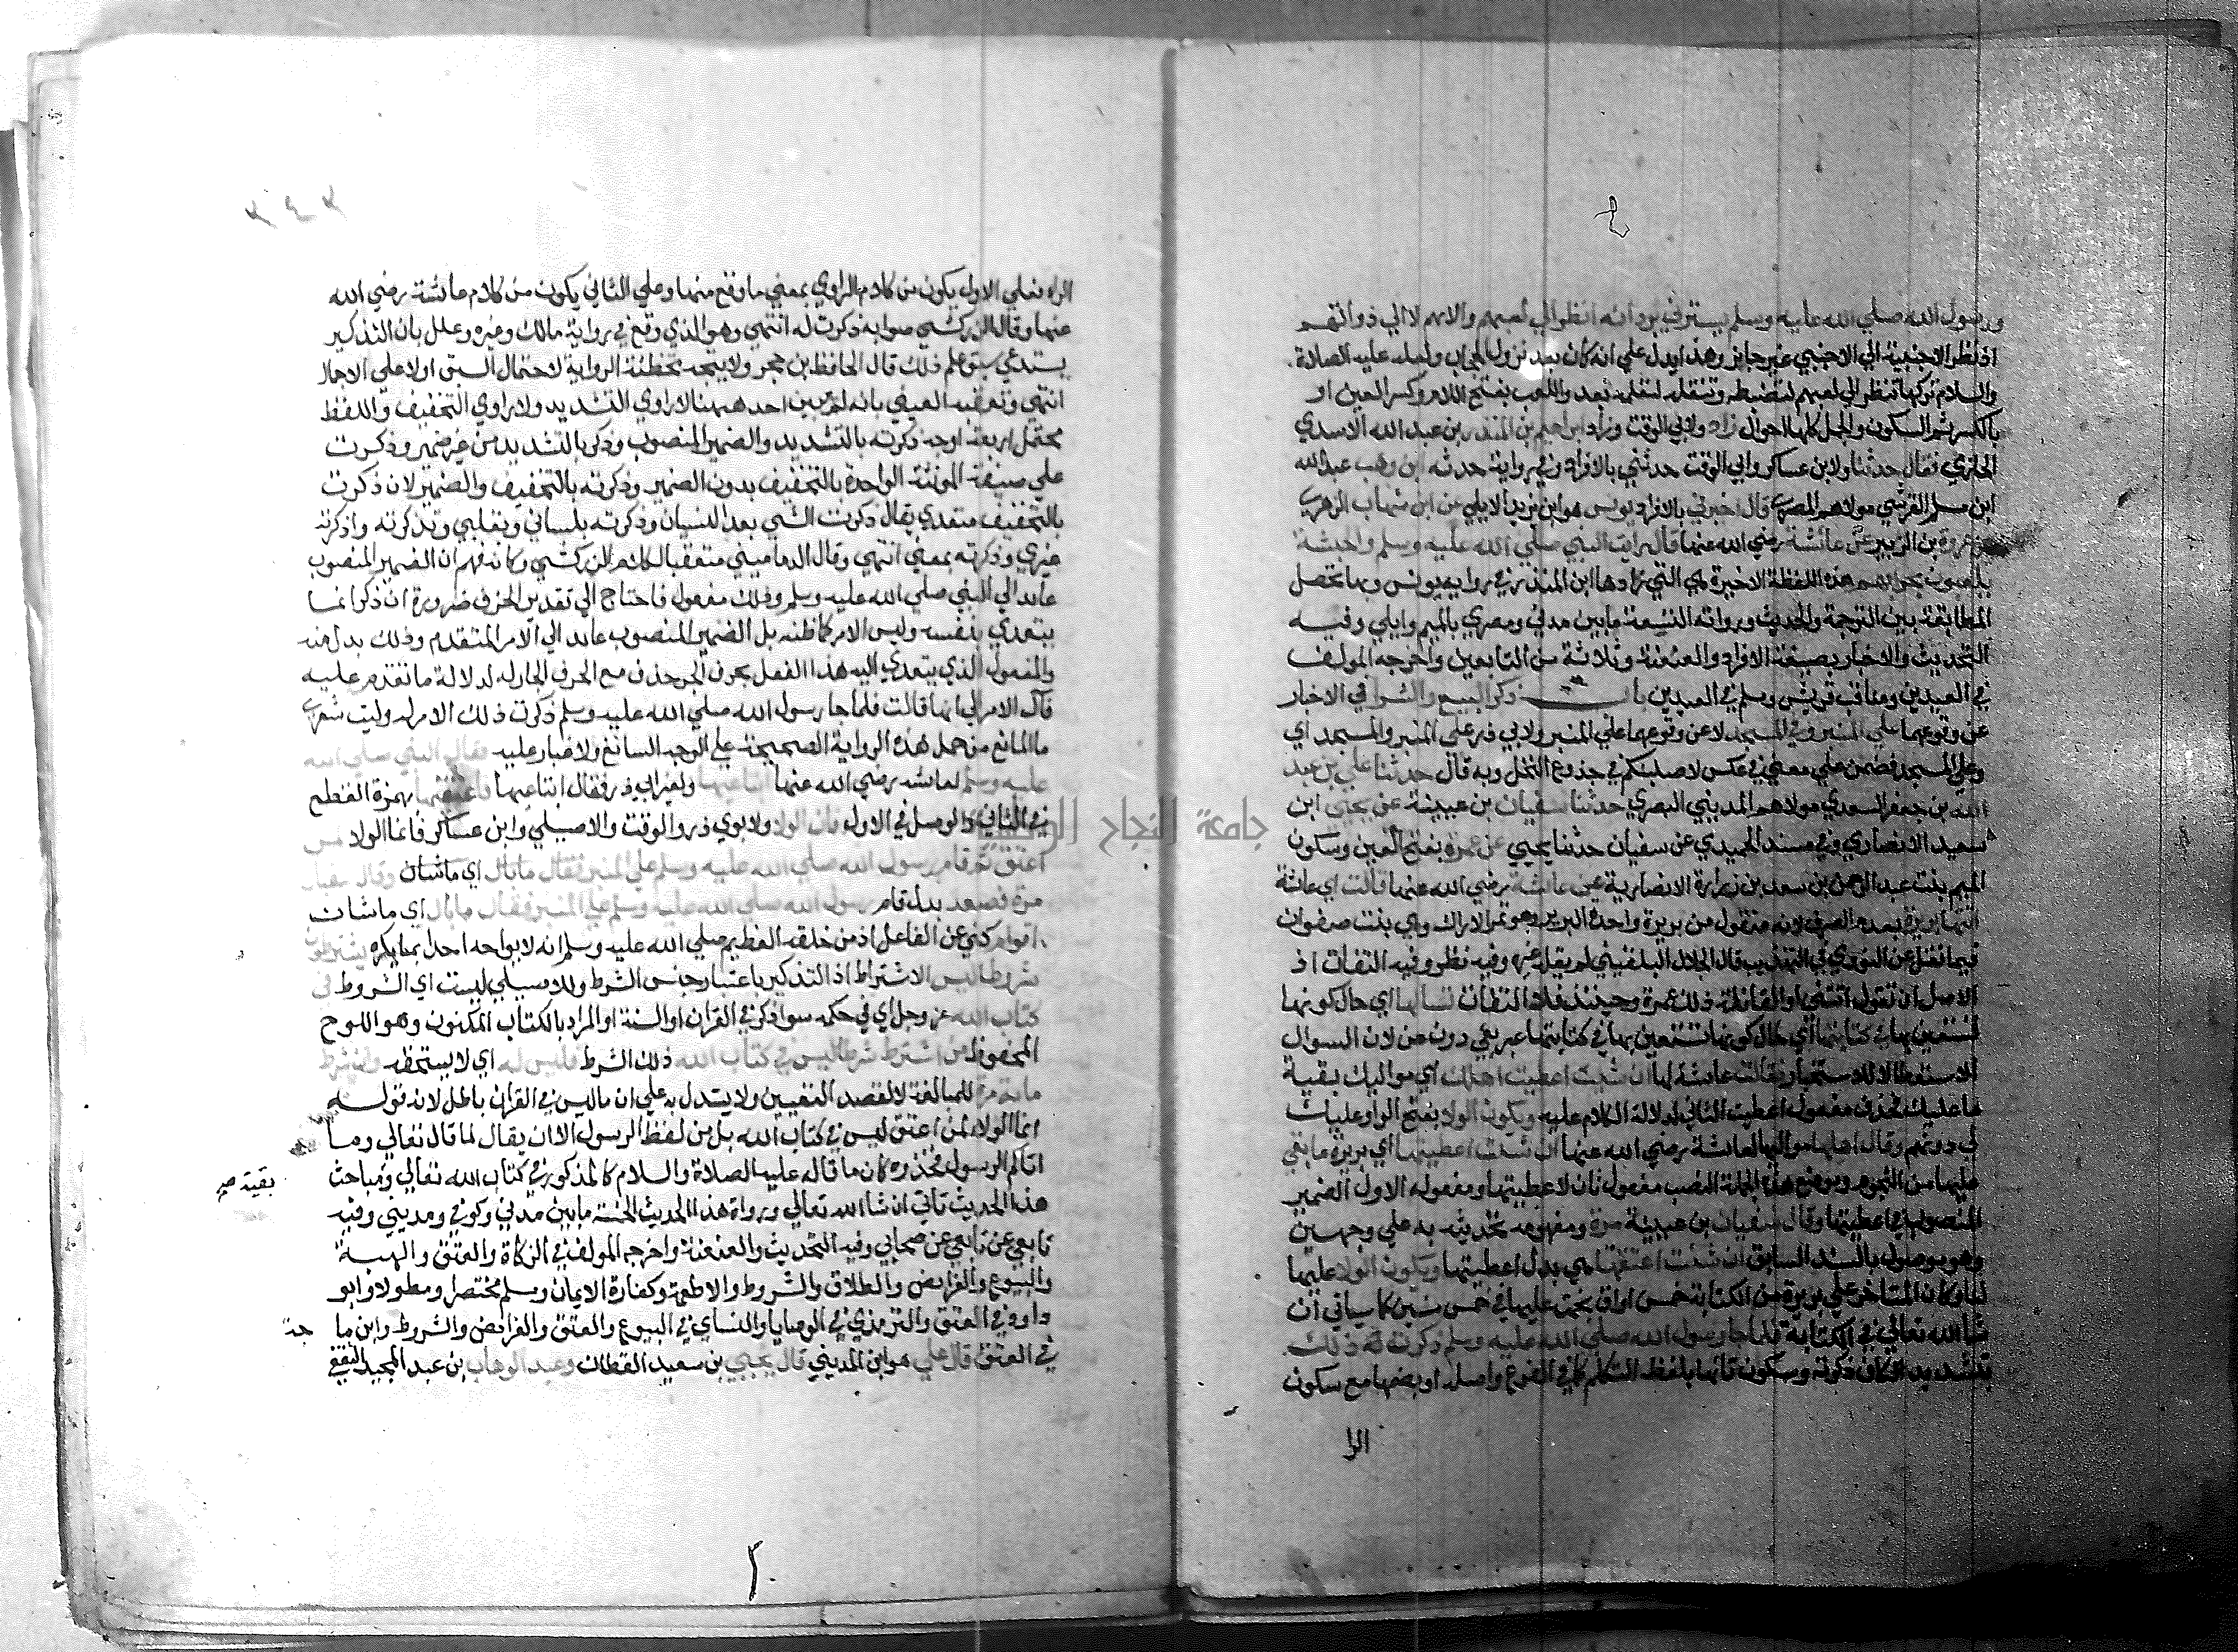 ورسول الله صلي الله عليه وسلم يسترني بردائه انظر الي لعبهم والاتهم لا الي ذواتهم
اذ نظر الاجنبية الي الاجنبي غير جايز وهذا يدل علي انه كان بعد نزول الحجاب ولعله عليه الصلاة
والسلام تركها تنظر الي لعبهم لتضبطه وتنقله لتعلمه بعد واللعب بفتح اللام وكسر العين او
بالكسر ثم السكون والجمل كلها احوال زاد ولابي الوقت وزاد ابراهيم بن المنذر بن عبد الله الاسدي
الحزامي فقال حدثنا ولابن عساكر وابي الوقت حدثني بالافراد وفي رواية حدثه ابن وهب عبد الله
ابن مسلم القرشي مولاهم المصري قال اخبرني بالافراد يونس هو ابن يزيد الايلي عن ابن شهاب الزهري
عن عروة بن الزبير عن عائشة رضي الله عنها قال رايت النبي صلي الله عليه وسلم والحبشة
يلعبون بحرابهم هذه اللفظة الاخيرة هي التي زادها ابن المنذر في رواية يونس وبها تحصل
المطابقة بين الترجمة والحديث ورواته التسعة ما بين مدني ومصري بالميم وايلي وفيه
التحديث والاخبار بصيغة الافراد والعنعنة وثلاثة من التابعين واخرجه المولف
في العيدين ومناقب قريش ومسلم في العيدين باب ذكر البيع والشرا في الاخبار
عن وقوعهما علي المنبر وفي المسجد لا عن وقوعهما علي المنبر ولابي ذر علي المنبر والمسجد اي
وعلي المسجد فضمن علي معني في عكس لاصلبنكم في جذوع النخل وبه قال حدثنا علي بن عبد
الله بن جعفر السعدي مولاهم المديني البصري حدثنا سفيان بن عيينة عن يحيي ابن
سعيد الانصاري وفي مسند الحميدي عن سفيان حدثنا يحيي عن عمرة بفتح العين وسكون
الميم بنت عبد الرحمن بن سعد بن زرارة الانصارية عن عائشة رضي الله عنها قالت اي عائشة
اتتها بريرة بعدم الصرف لانه منقول من بريرة واحدة البرير وهو ثمر الاراك وهي بنت صفوان
فيما نقل عن النووي في التهذيب قال الجلال البلقيني لم يقله غيره وفيه نظر وفيه التفات اذ
الاصل ان تقول اتتني او القائلة ذلك عمرة وحينئذ فلا التفات تسالها اي حال كونها
تستعين بها في كتابتها اي حال كونها تستعين بها في كتابتها عبر بفي دون عن لان السوال
للاستعطا لا للاستخبار فقالت عائشة لها ان شيت اعطيت اهلك اي مواليك بقية
ما عليك فحذف مفعول اعطيت الثاني لدلالة الكلام عليه ويكون الولا بفتح الواو عليك
لي دونهم وقال اهلها مواليها لعائشة رضي الله عنها ان شئت اعطيتها اي بريرة ما بقي
عليها من النجوم وموضع هذه الجملة النصب مفعول ثان لاعطيتها ومفعوله الاول الضمير
المنصوب في اعطيتها وقال سفيان بن عيينة مرة ومفهومه تحديثه به علي وجهين
وهو موصول بالسند السابق ان شئت اعتقتها هي بدل اعطيتها ويكون الولا عليها
لنا وكان المتاخر علي بريرة من الكتابة خمس اواق نجمت عليها في خمس سنين كما سياتي ان
شا الله تعالي في الكتابة فلما جا رسول الله صلي الله عليه وسلم ذكرت له ذلك
بتشديد الكاف ذكرته وسكون تائها بلفظ المتكلم كما في الفرع واصله او بضمها مع سكون
الرا
٣٤٣
الراء فعلي الاول يكون من كلام الراوي بمعني ما وقع منها وعلي الثاني يكون من كلام عائشة رضي الله
عنها وقال الزركشي صوابه ذكرت له انتهي وهو الذي وقع في رواية مالك وغيره وعلل بان التذكير
يستدعي سبق علم ذلك قال الحافظ بن حجر ولا يتجه تخطئة الرواية لاحتمال السبق اولا علي الاجمال
انتهي وتعقبه العيني بانه لم يبين احد هاهنا لا راوي التشديد ولا راوي التخفيف واللفظ
محتمل اربعة اوجه ذكرته بالتشديد والضمير المنصوب وذكرت بالتشديد من غير ضمير وذكرت
علي صيغة المونثة الواحدة بالتخفيف بدون الضمير وذكرته بالتخفيف والضمير لان ذكرت
بالتخفيف متعدي يقال ذكرت الشي بعد النسيان وذكرته بلساني وبقلبي وتذكرته واذكرته
غيري وذكرته بمعني انتهي وقال الدماميني متعقبا لكلام الزركشي وكانه فهم ان الضمير المنصوب
عائد الي النبي صلي الله عليه وسلم وذلك مفعول فاحتاج الي تقدير الحرف ضرورة ان ذكر انما
يتعدي بنفسه وليس الامر كما ظنه بل الضمير المنصوب عائد الي الامر المتقدم وذلك بدل منه
والمفعول الذي يتعدي اليه هذا الفعل بحرف الجر حذف مع الحرف الجار له لدلالة ما تقدم عليه
فال الامر الي انها قالت فلما جا رسول الله صلي الله عليه وسلم ذكرت ذلك الامر له وليت شعري
ما المانع من حمل هذه الرواية الصحيحة علي الوجه السائغ ولا غبار عليه فقال النبي صلي الله
عليه وسلم لعائشة رضي الله عنها ابتاعيها ولغير ابي ذر فقال ابتاعيها فاعتقيها بهمزة القطع
في الثاني والوصل في الاول فان الولا ولابوي ذر والوقت والاصيلي وابن عساكر فانما الولا لمن
اعتق ثم قام رسول الله صلي الله عليه وسلم علي المنبر فقال ما بال اي ما شان وقال سفيان
مرة فصعد بدل قام رسول الله صلي الله عليه وسلم علي المنبر فقال ما بال اي ما شان
اقوام كني عن الفاعل اذ من خلقه العظيم صلي الله عليه وسلم انه لا يواجه احدا بما يكره يشترطون
شروطا ليس الاشتراط اذ التذكير باعتبار جنس الشرط وللاصيلي ليست اي الشروط في
كتاب الله عز وجل اي في حكمه سوا ذكر في القران او السنة او المراد بالكتاب المكنون وهو اللوح
المحفوظ من اشترط شرطا ليس في كتاب الله ذلك الشرط فليس له اي لا يستحقه وان اشترط
مائة مرة للمبالغة لا لقصد التعيين ولا يستدل به علي ان ما ليس في القران باطل لانه قوله
انما الولاء لمن اعتق ليس في كتاب الله بل من لفظ الرسول الا ان يقال لما قال تعالي وما
اتاكم الرسول فخذوه كان ما قاله عليه الصلاة والسلام كالمذكور في كتاب الله تعالي ومباحث
بقية صح
هذا الحديث تاتي ان شا الله تعالي ورواة هذا الحديث الخمسة ما بين مدني وكوفي ومديني وفيه
تابعي عن تابعي عن صحابي وفيه التحديث والعنعنة واخرجه المولف في الزكاة والعتق والهبة
والبيوع والفرائض والطلاق والشروط والاطعمة وكفارة الايمان ومسلم مختصرا ومطولا وابو
داود في العتق والترمذي في الوصايا والنساي في البيوع والعتق والفرائض والشروط وابن ما
جة
في العتق قال علي هو ابن المديني قال يحيي بن سعيد القطان وعبد الوهاب بن عبد المجيد الثقفي
جامعة النجاح الوطنية